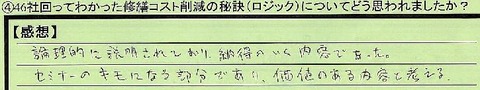 ④46社回ってわかった修繕コスト削減の秘訣(ロジック)についてどう思われましたか?
【感想】
論理的に説明されており、納得のいく内容であった。
セミナーのキモになる部分であり、価値のある内容と考える。